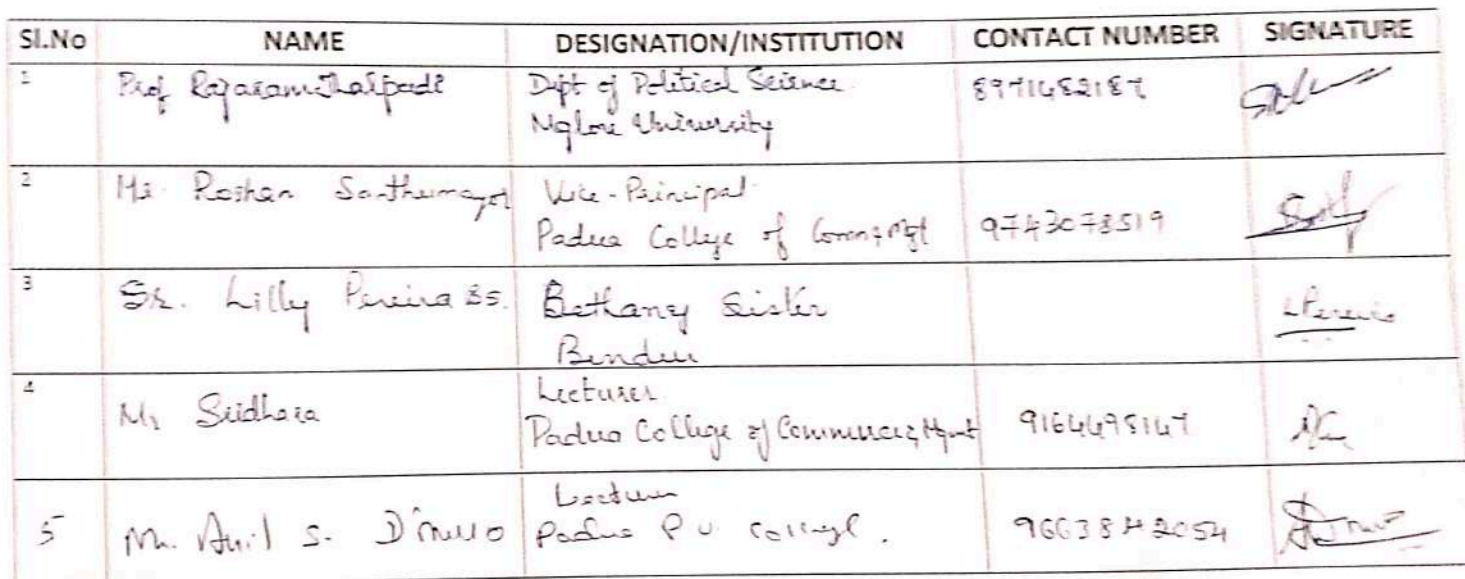 Sl.No NAME DESIGNATION/INSTITUTION CONTACT NUMBER SIGNATURE
1 Prof Rajaram Tholpadi Dept of Political Science 8971482187
Mglore University
2 Mr. Roshan Santhumayor Vice-Principal
Padua College of Comm & Mgt 9743073519
3 Sr. Lilly Pereira BS. Bethany Sister LPereira
Bendur
4 Lecturer
Mr Sridhara Padua College of Commerce & Mgmt 9164498147
Lecturer
5 Mr. Anil S. D'mello Padua P U College. 9663842054